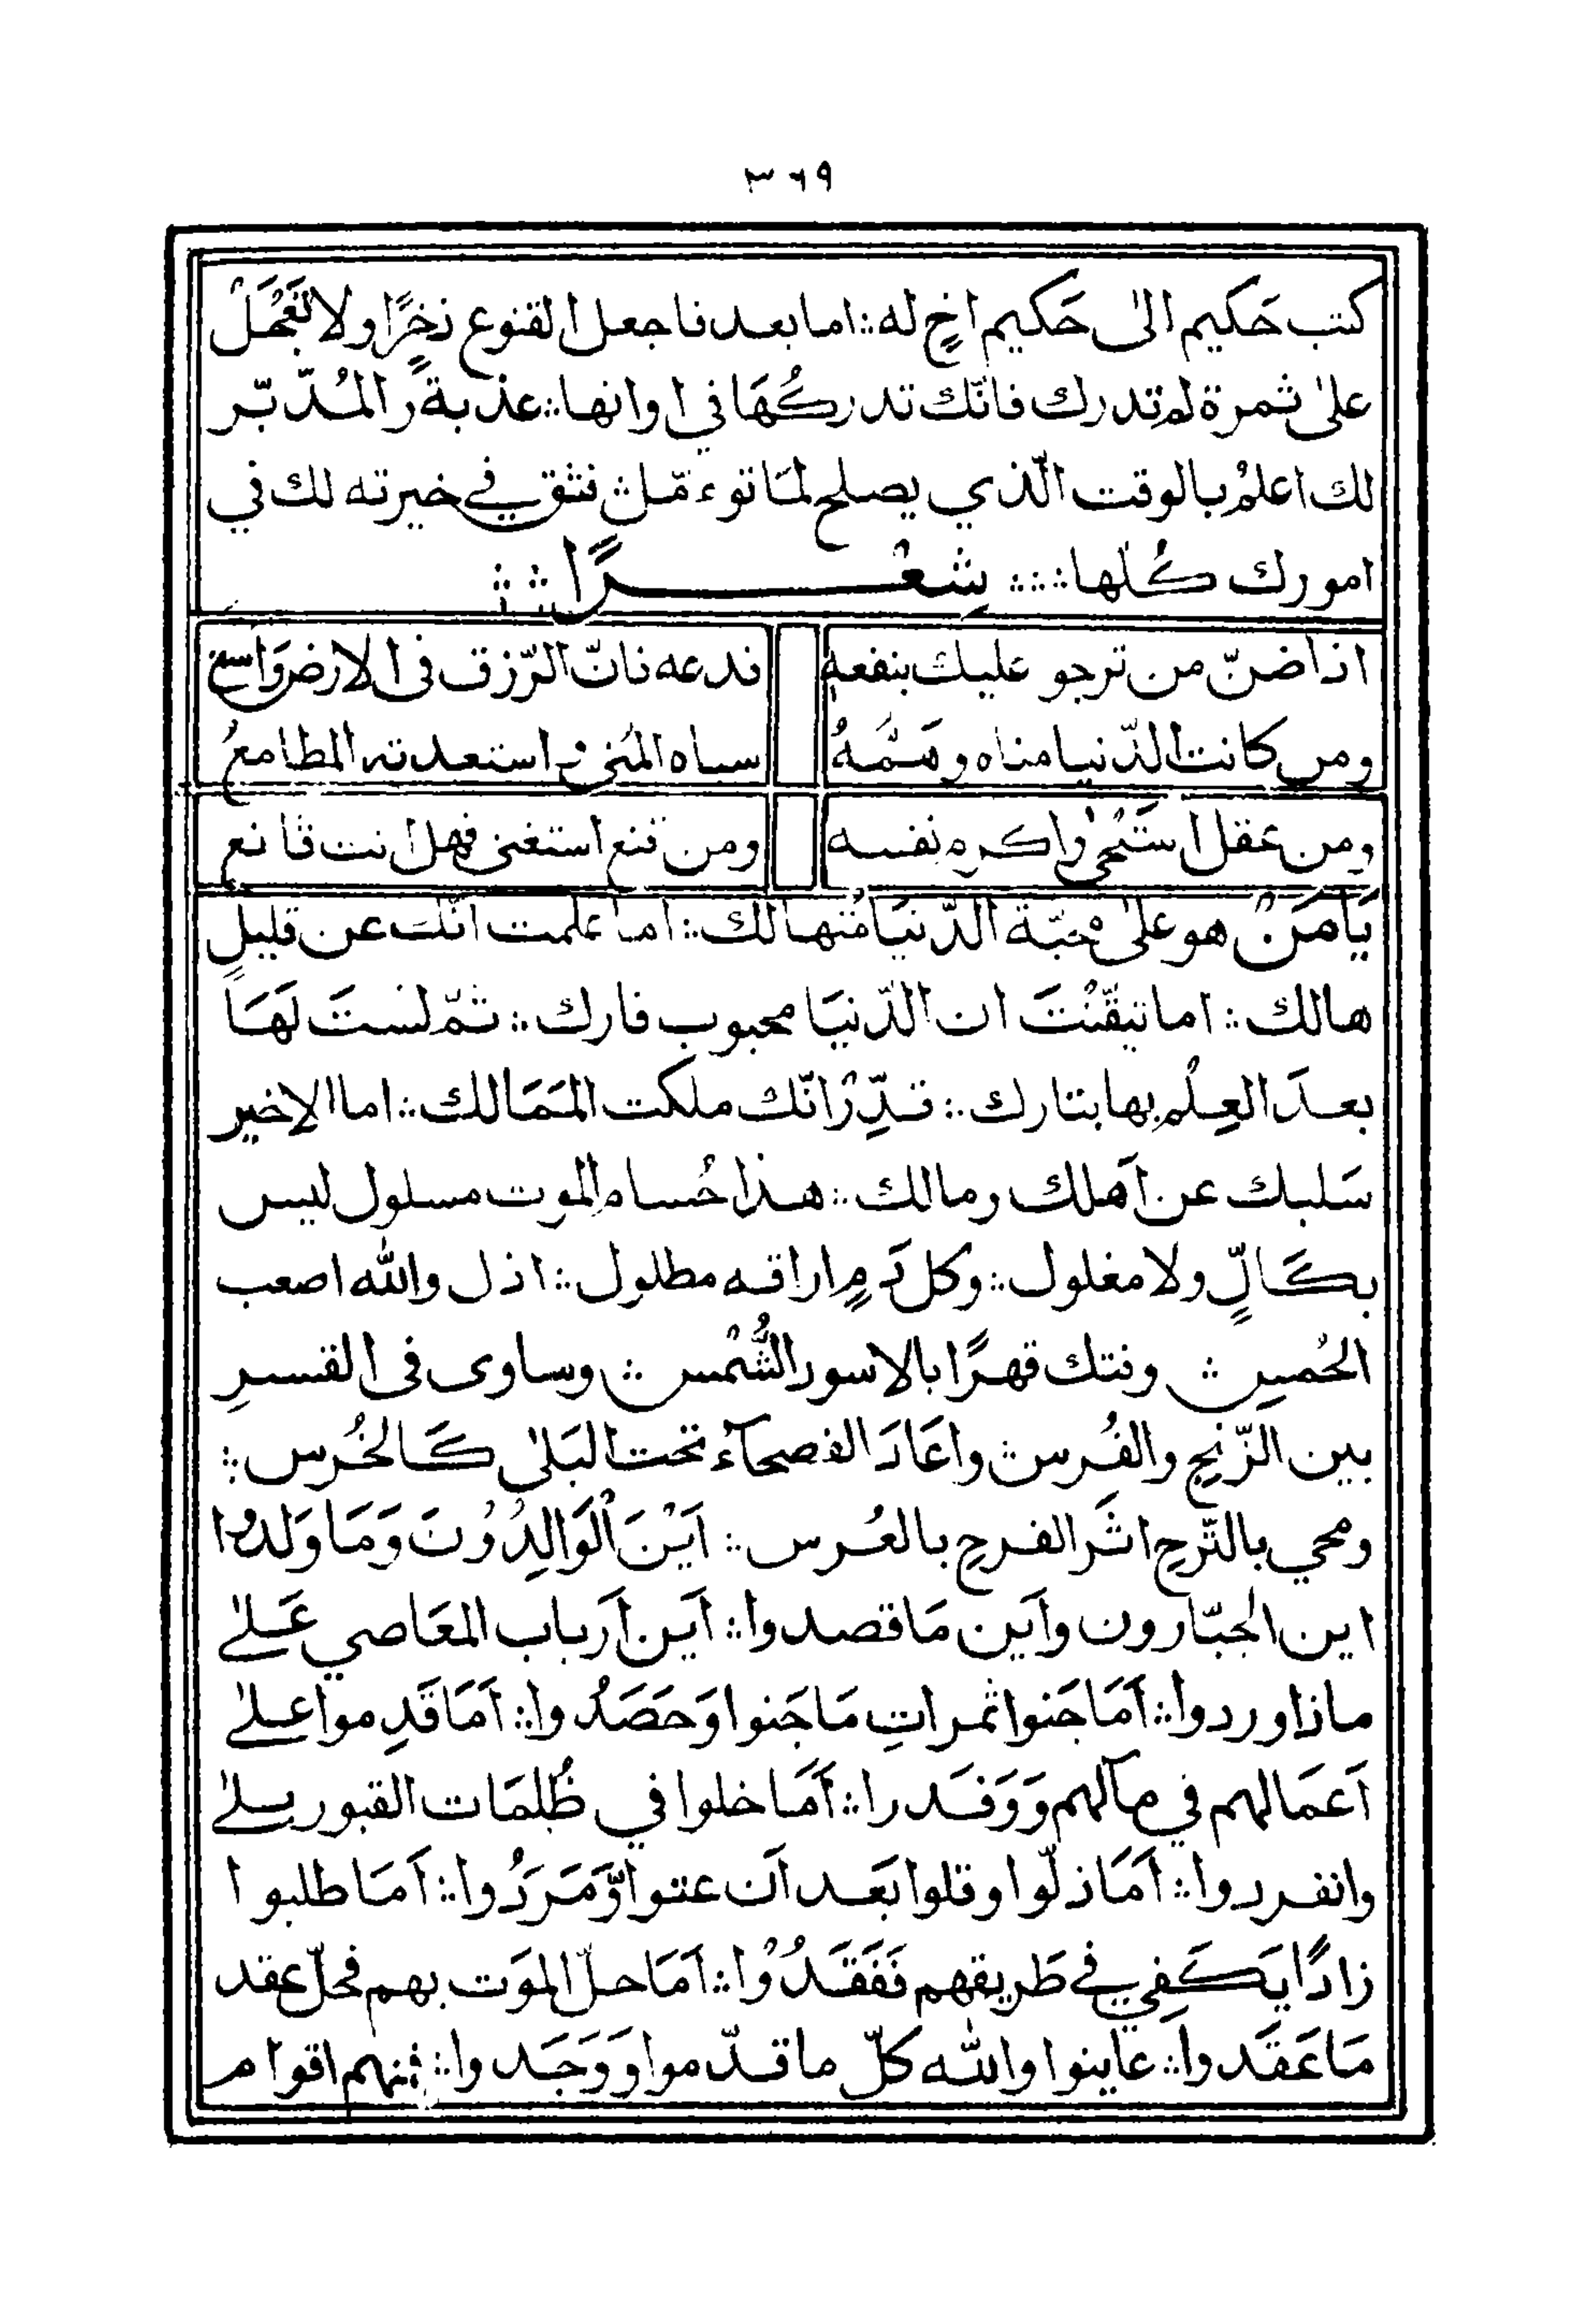 ٣٦٩
كتب حَكيم الىٰ حَكيم اخٍ له ∴ اما بعد فاجعل القنوع ذخرًا ولا تَعْجَلْ
علىٰ ثمرة لم تدرك فانّك تدركُهَا في اوانها ∴ عذبة والمُدّبّر
لك اعلمُ بالوقت الّذي يصلح لمَا توءمّل ∴ فثق في خيرته لك في
امورك كُلّها ∴ ∴ شِعْــــرًا ∴ ∴
اذا ضنّ من ترجو عليك بنفعهِ فدعه فانّ الرّزق فى الارض وَاسع
ومن كانت الدّنيا مناه وهَمَّهُ سباه المُنىٰ واستعبدته المطامعُ
ومن عقل استَحْىٰ واكرم نفسه ومن قنع استغنى فهل انت قانع
يَا مَنْ هو علىٰ محبّة الدّنيَا مُتهالك ∴ اما علمت انّك عن قليلٍ
هالك ∴ اما تيقّنْتَ ان الدّنيَا محبوب فارك ∴ ثمّ لستَ لَهَا
بعدَ العِلْم بها بتارك ∴ قدِّرْ انّك ملكت المَمَالك ∴ اما الاخير
سَلبك عن اَهلك ومالك ∴ هذا حُسام الموت مسلول ليس
بكَالٍّ ولا مغلول ∴ وكل دَمٍ اراقه مطلول ∴ اذل والله اصعب
الحُمسِ ∴ وفتك قهرًا بالاسود الشُّمْسِ ∴ وساوى فى القسرِ
بين الزّنجِ والفُرس ∴ واعَادَ الفصحآءُ تحت البَلىٰ كَالخُرس ∴
ومحي بالتّرحِ اثَر الفرحِ بالعُرس ∴ اَيْنَ الْوَالِدُوْنَ وَمَا وَلدوا
اين الجبّارون واَين مَا قصدوا ∴ اَين اَرباب المعَاصي عَلىٰ
ماذا وردوا ∴ اَمَا جَنوا ثمراتِ مَا جَنوا وَحَصَدُوا ∴ اَمَا قَدِموا علىٰ
اَعمَالهم في مآلهم وَوَفَدوا ∴ اَمَا خلوا في ظُلمَات القبور بلىٰ
وانفردوا ∴ اَمَا ذلّوا وقلوا بَعد اَن عتوا وَّمَرَدُوا ∴ اَمَا طلبوا
زادًا يَكَفِي في طَريقهم فَفَقَدُوْا ∴ اَمَا حلّ الموَت بهم فحلّ عقد
مَا عَقَدوا ∴ عاينوا والله كلّ ما قدّموا وَوَجَدوا ∴ فمنهم اقوام